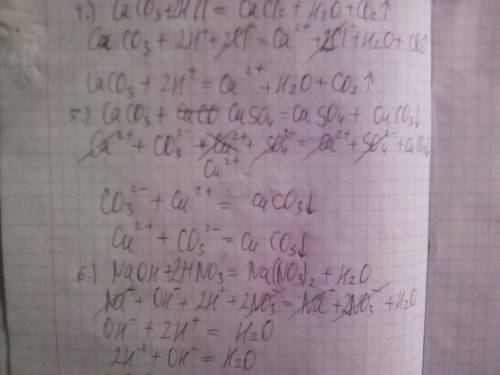 4.) CaCO₃+2HCl = CaCl₂ + H₂O + CO₂↑
CaCO₃ + 2H⁺ + 2Cl⁻ = Ca²⁺ + 2Cl⁻ + H₂O + CO₂↑
CaCO₃ + 2H⁺ = Ca²⁺ + H₂O + CO₂↑
5.) CaCO₃ + CuSO₄ = CaSO₄ + CuCO₃↓
Ca²⁺ + CO₃²⁻ + Cu²⁺ + SO₄²⁻ = Ca²⁺ + SO₄²⁻ + CuCO₃↓
Cu²⁺
CO₃²⁻ + Cu²⁺ = CuCO₃↓
Cu²⁺ + CO₃²⁻ = CuCO₃↓
6.) NaOH+2HNO₃ = Na(NO₃)₂ + H₂O
Na⁻ + OH⁻ + 2H⁺ + 2NO₃⁻ = Na⁻ + 2NO₃⁻ + H₂O
OH⁻ + 2H⁺ = H₂O
2H⁺ + OH⁻ = H₂O